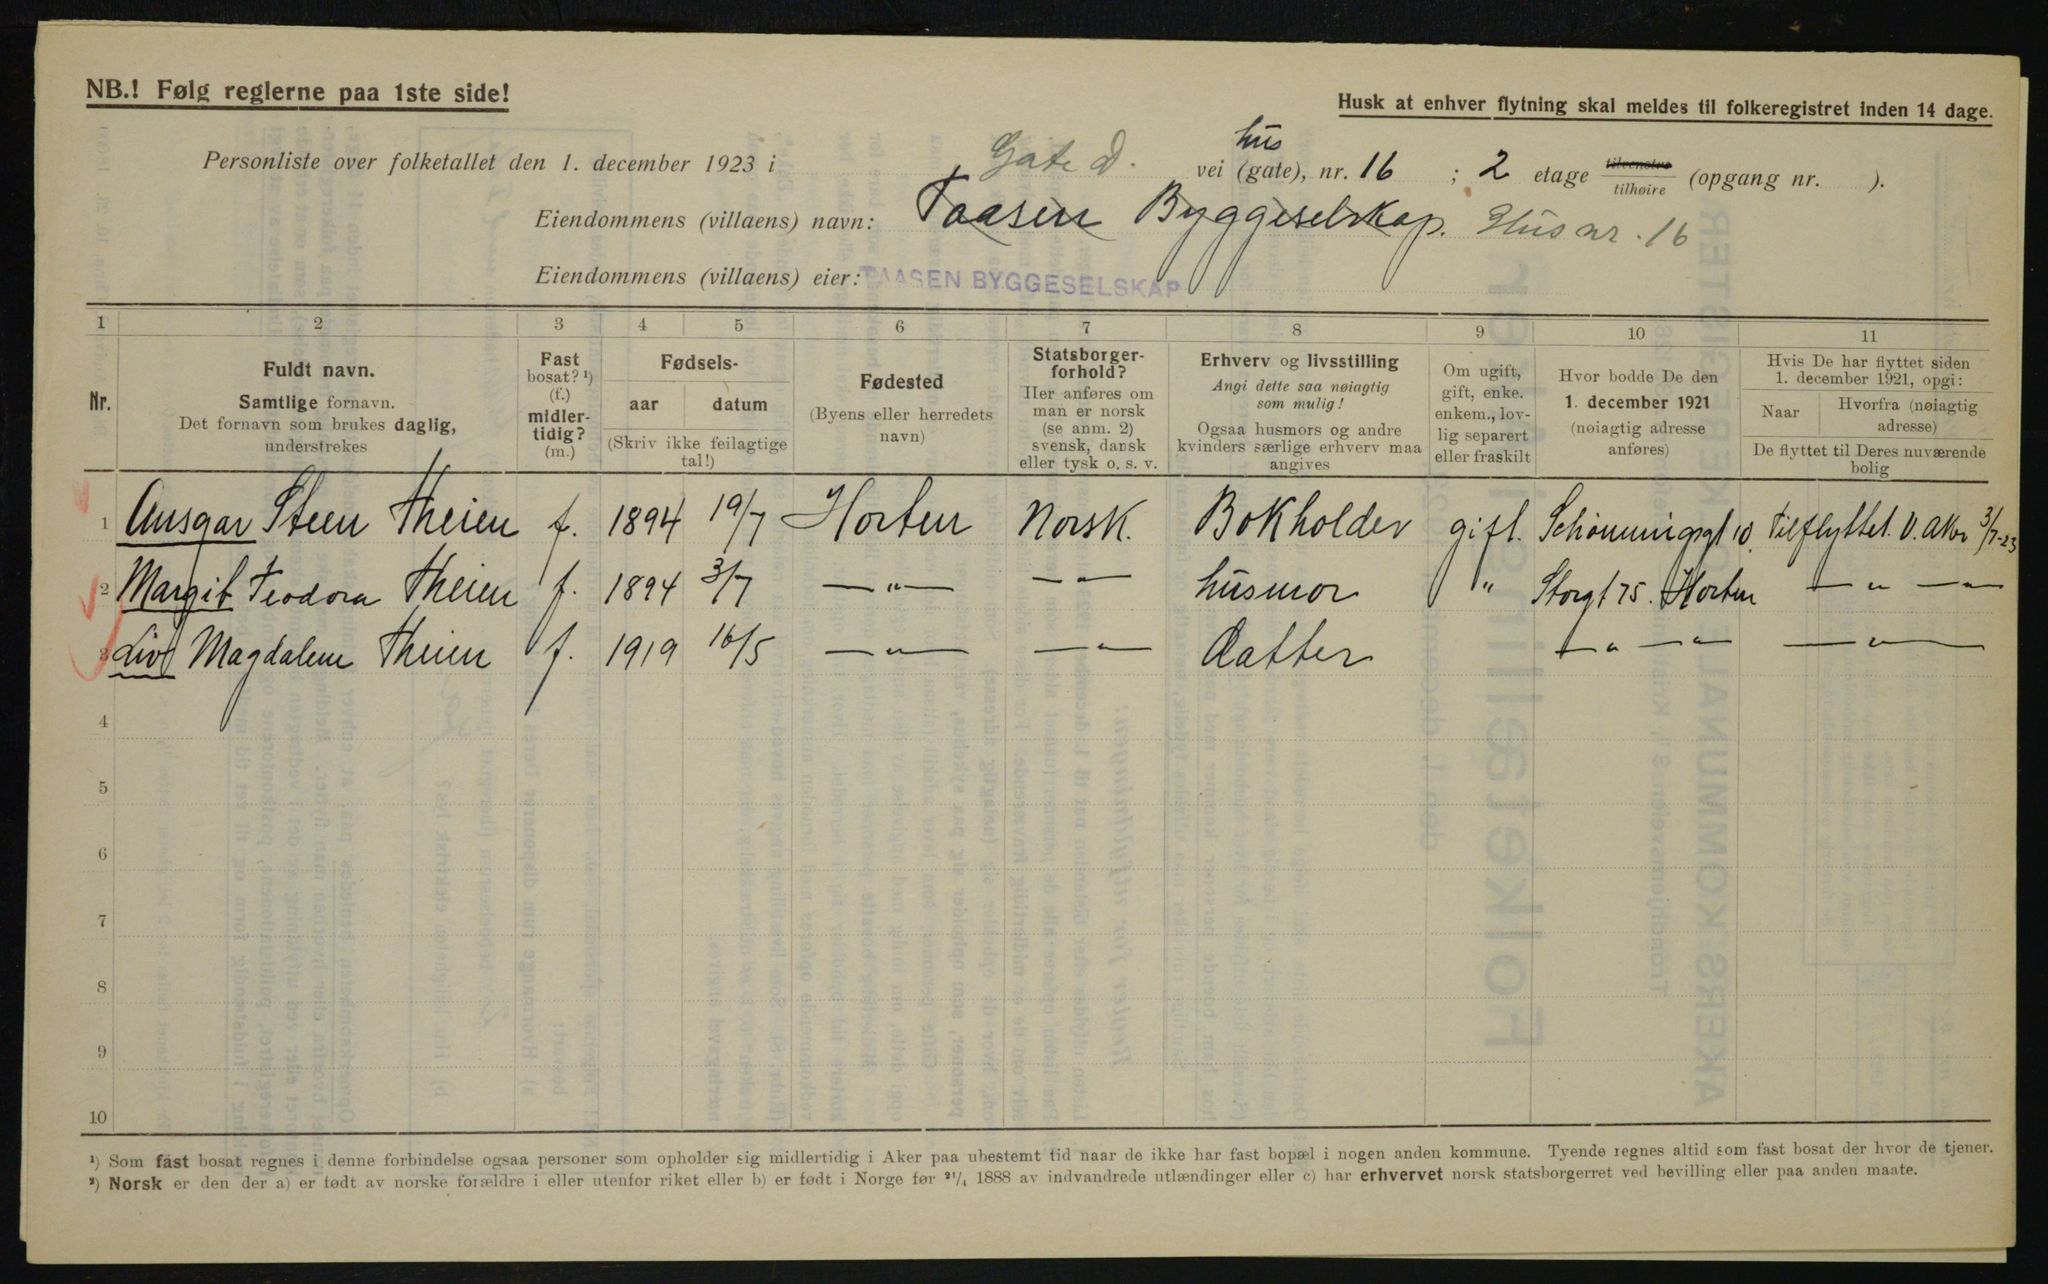 NB.! Følg reglerne paa 1ste side!
Husk at enhver flytning skal meldes til folkeregistret inden 14 dage.
hus
Personliste over folketallet den 1. december 1923 i Gate D. vei (gate), nr. 16 ; 2 etage tilvenstre tilhøire (opgang nr. ).
Eiendommens (villaens) navn: Taasen Byggeselskap. Hus nr. 16
Eiendommens (villaens) eier: TAASEN BYGGESELSKAP
1 2 3 4 5 6 7 8 9 10 11
Nr.
Fuldt navn.
Samtlige fornavn.
Det fornavn som brukes daglig,
understrekes
Fast
bosat? ¹)
(f.)
midler-
tidig?
(m.)
Fødsels-
aar datum
(Skriv ikke feilagtige
tal!)
Fødested
(Byens eller herredets
navn)
Statsborger-
forhold?
Her anføres om
man er norsk
(se anm. 2)
svensk, dansk
eller tysk o. s. v.
Erhverv og livsstilling
Angi dette saa nøiagtig
som mulig!
Ogsaa husmors og andre
kvinders særlige erhverv maa
angives
Om ugift,
gift, enke.
enkem., lov-
lig separert
eller fraskilt
Hvor bodde De den
1. december 1921
(nøiagtig adresse
anføres)
Hvis De har flyttet siden
1. december 1921, opgi:
Naar Hvorfra (nøiagtig
adresse)
De flyttet til Deres nuværende
bolig
1 Ansgar Steen Theien f. 1894 19/7 Horten Norsk. Bokholder gift. Schønningsgt 10. Tilflyttet V. Aker 3/7-23
2 Margit Teodora Theien f. 1894 3/7 —„— —„— husmor „ Storgt 75. Horten —„—
3 Liv Magdalene Theien f. 1919 16/5 —„— —„— Datter —„— —„— —„—
4
5
6
7
8
9
10
¹) Som fast bosat regnes i denne forbindelse ogsaa personer som opholder sig midlertidig i Aker paa ubestemt tid naar de ikke har fast bopæl i nogen anden kommune. Tyende regnes altid som fast bosat der hvor de tjener.
²) Norsk er den der a) er født av norske forældre i eller utenfor riket eller b) er født i Norge før ²¹/₄ 1888 av indvandrede utlændinger eller c) har erhvervet norsk statsborgerret ved bevilling eller paa anden maate.